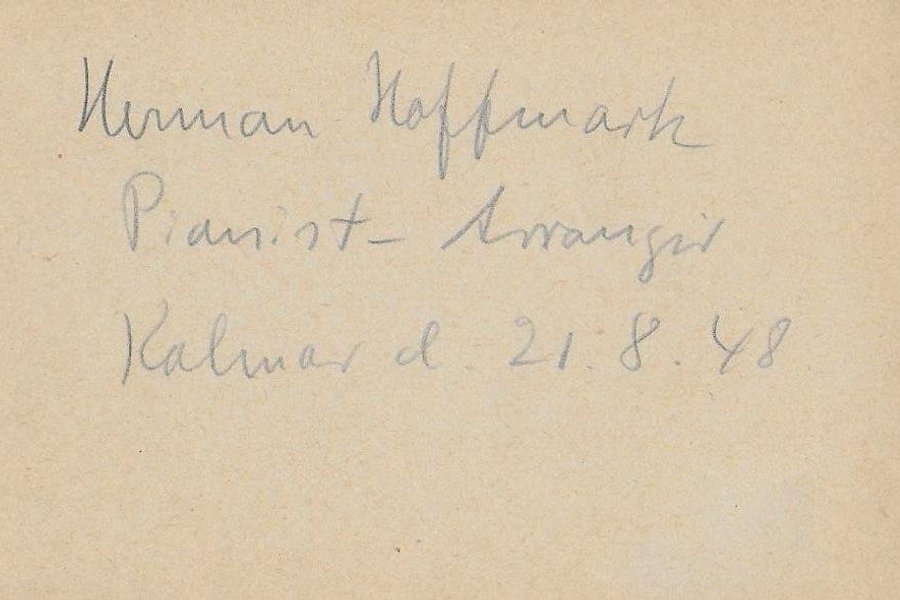 Herman Hoffmark
Pianist – Arrangör
Kalmar d. 21.8.48